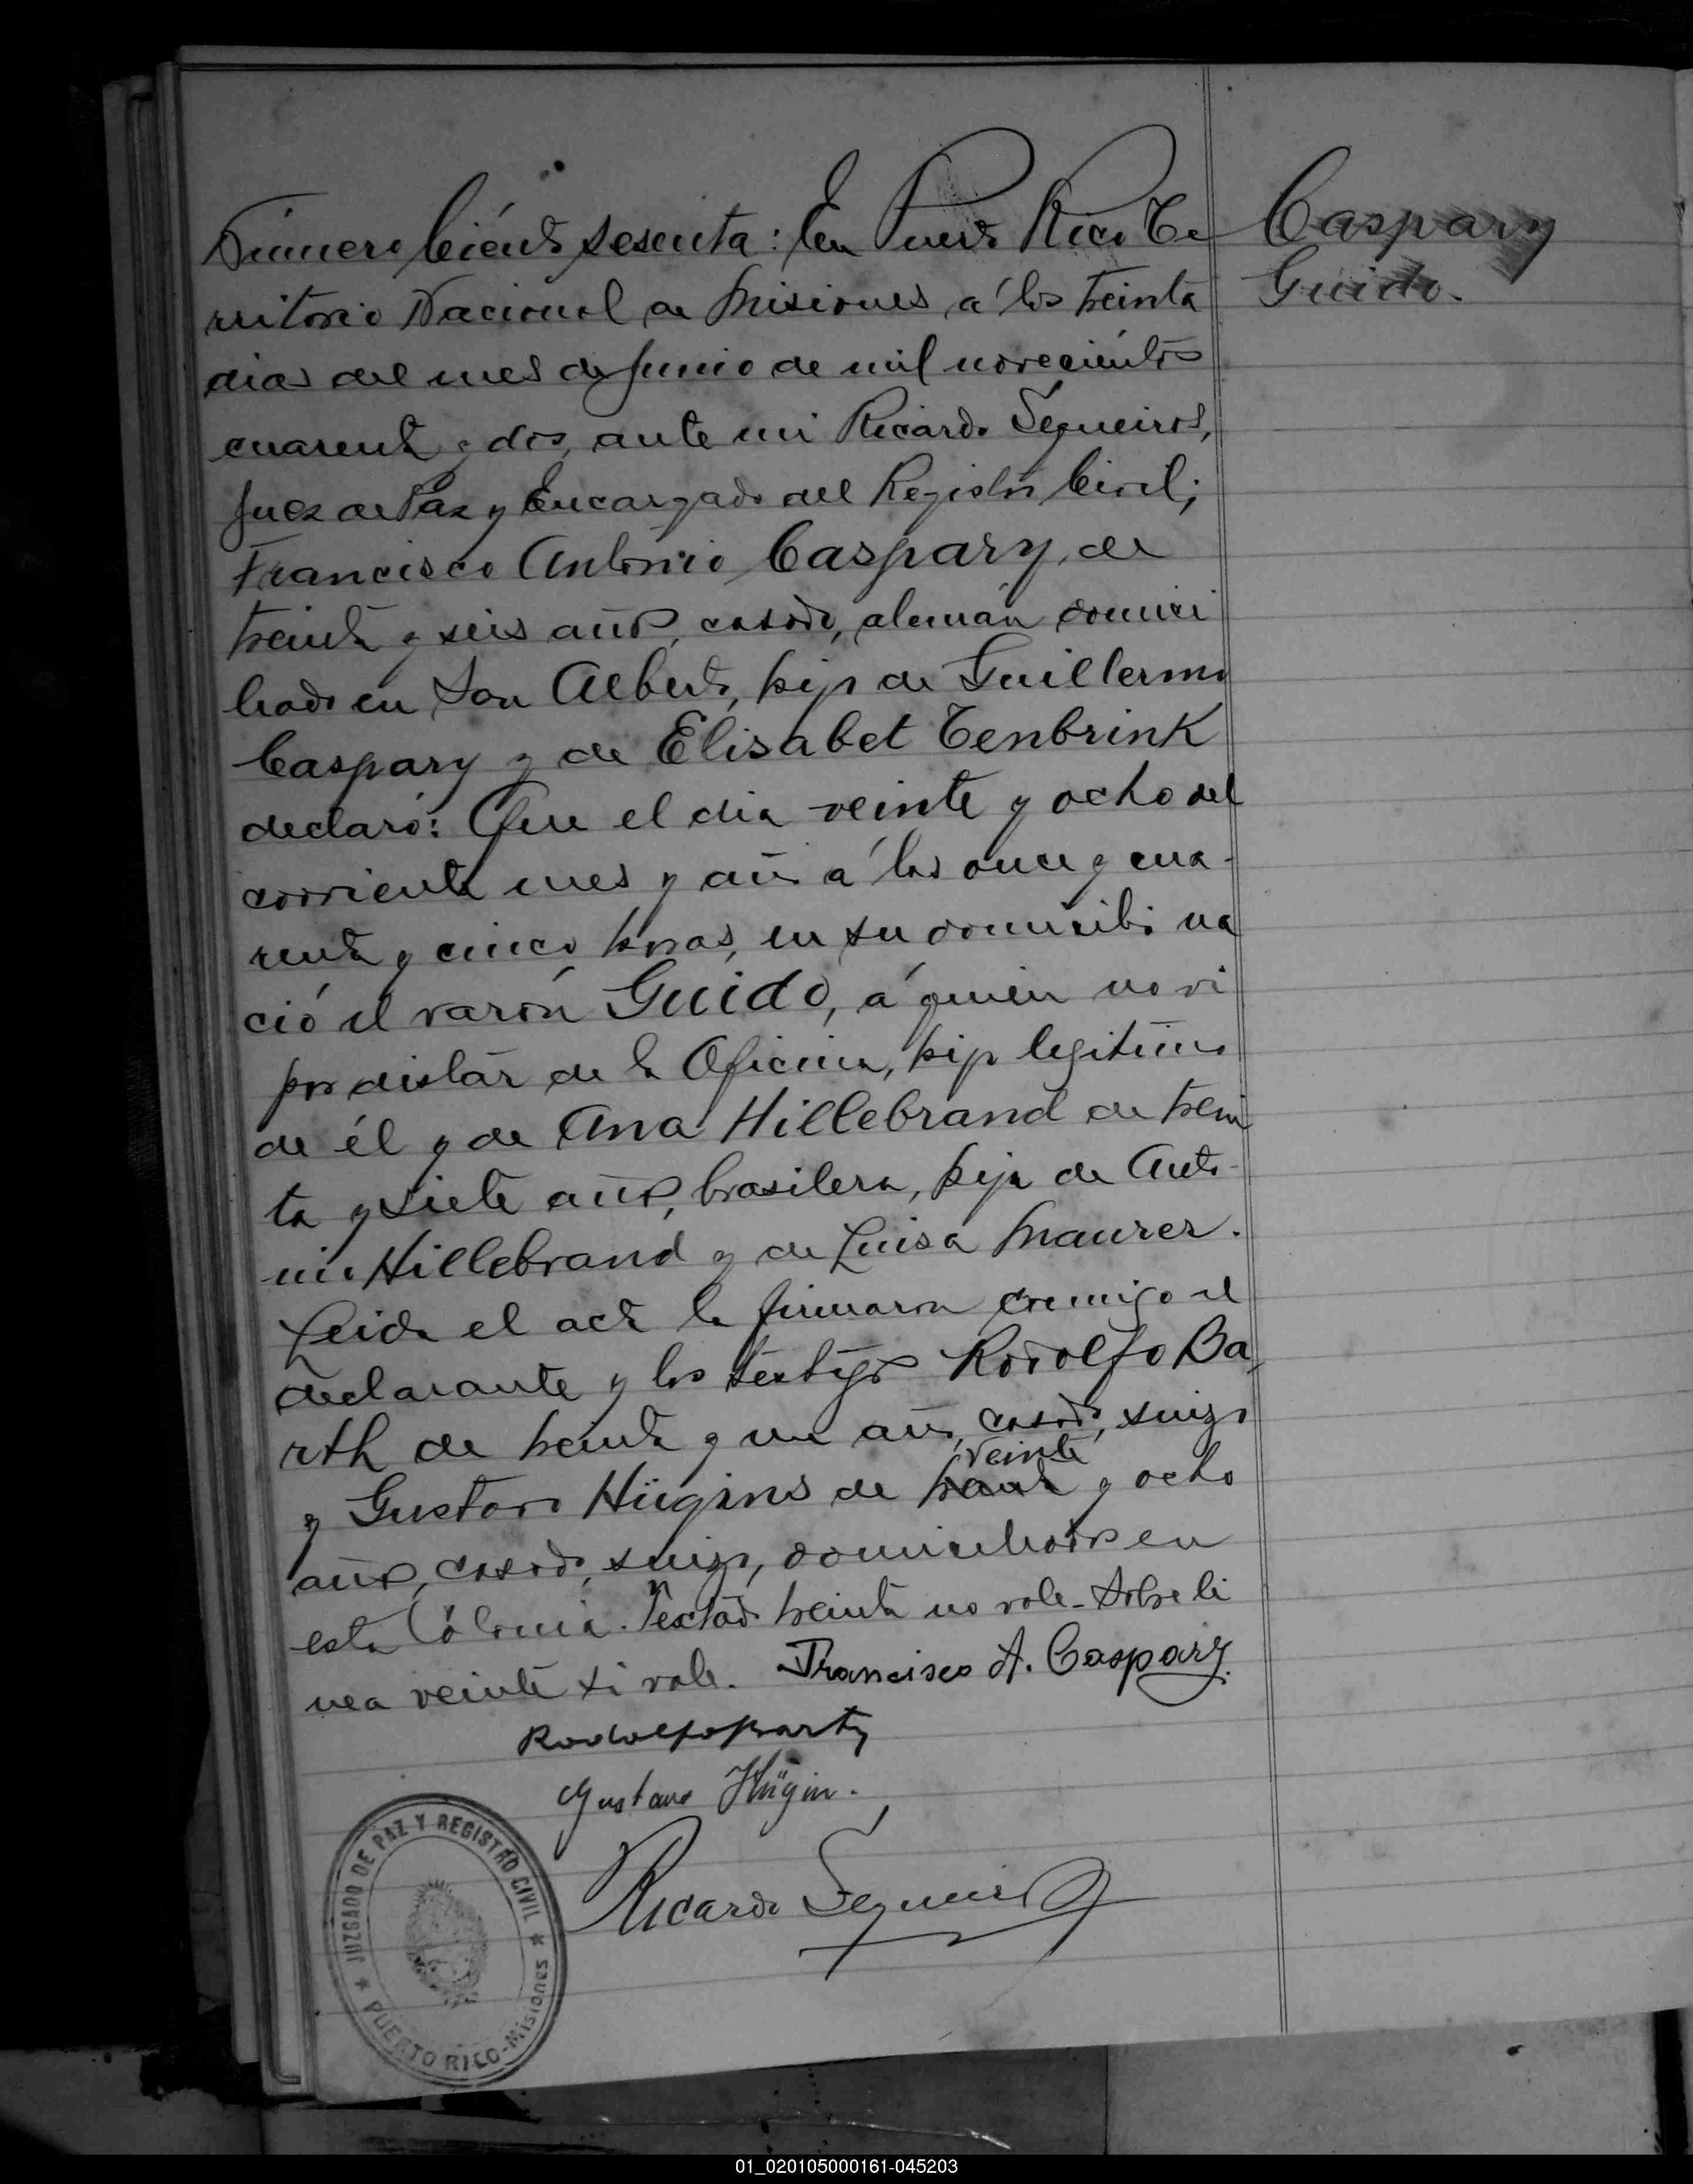 Número Ciento sesenta: En Puerto Rico Te
rritorio Nacional de Misiones á los treinta
dias del mes de Junio de mil novecientos
cuarenta y dos, ante mi Ricardo Sequeiros,
Juez de Paz y Encargado del Registro Civil;
Francisco Antonio Caspary, de
treinta y seis años, casado, alemán domici
liado en San Alberto, hijo de Guillermo
Caspary y de Elisabet Tenbrink
declaró: Que el dia veinte y ocho del
corriente mes y año á las once y cua-
renta y cinco horas, en su domicilio na
ció el varón Guido, á quien no vi
por distar de la Oficina, hijo legitimo
de él y de Ana Hillebrand de trein
ta y siete años, brasilera, hija de Anto-
nio Hillebrand y de Luisa Maurer.
Leida el acta la firmaron conmigo el
declarante y los testigos Rodolfo Ba
rth de treinta y un años, casado, suizo
veinte
y Gustavo Hügins de treinta y ocho
años, casado, suizo, domiciliados en
esta Colonia. Testado treinta no vale. Sobre li
nea veinte si vale. Francisco A. Caspary.
Rodolfo Barth
Gustavo Hügin.
Ricardo Sequeiros
Caspary
Guido.
JUZGADO DE PAZ Y REGISTRO CIVIL
PUERTO RICO-Misiones
01_020105000161-045203